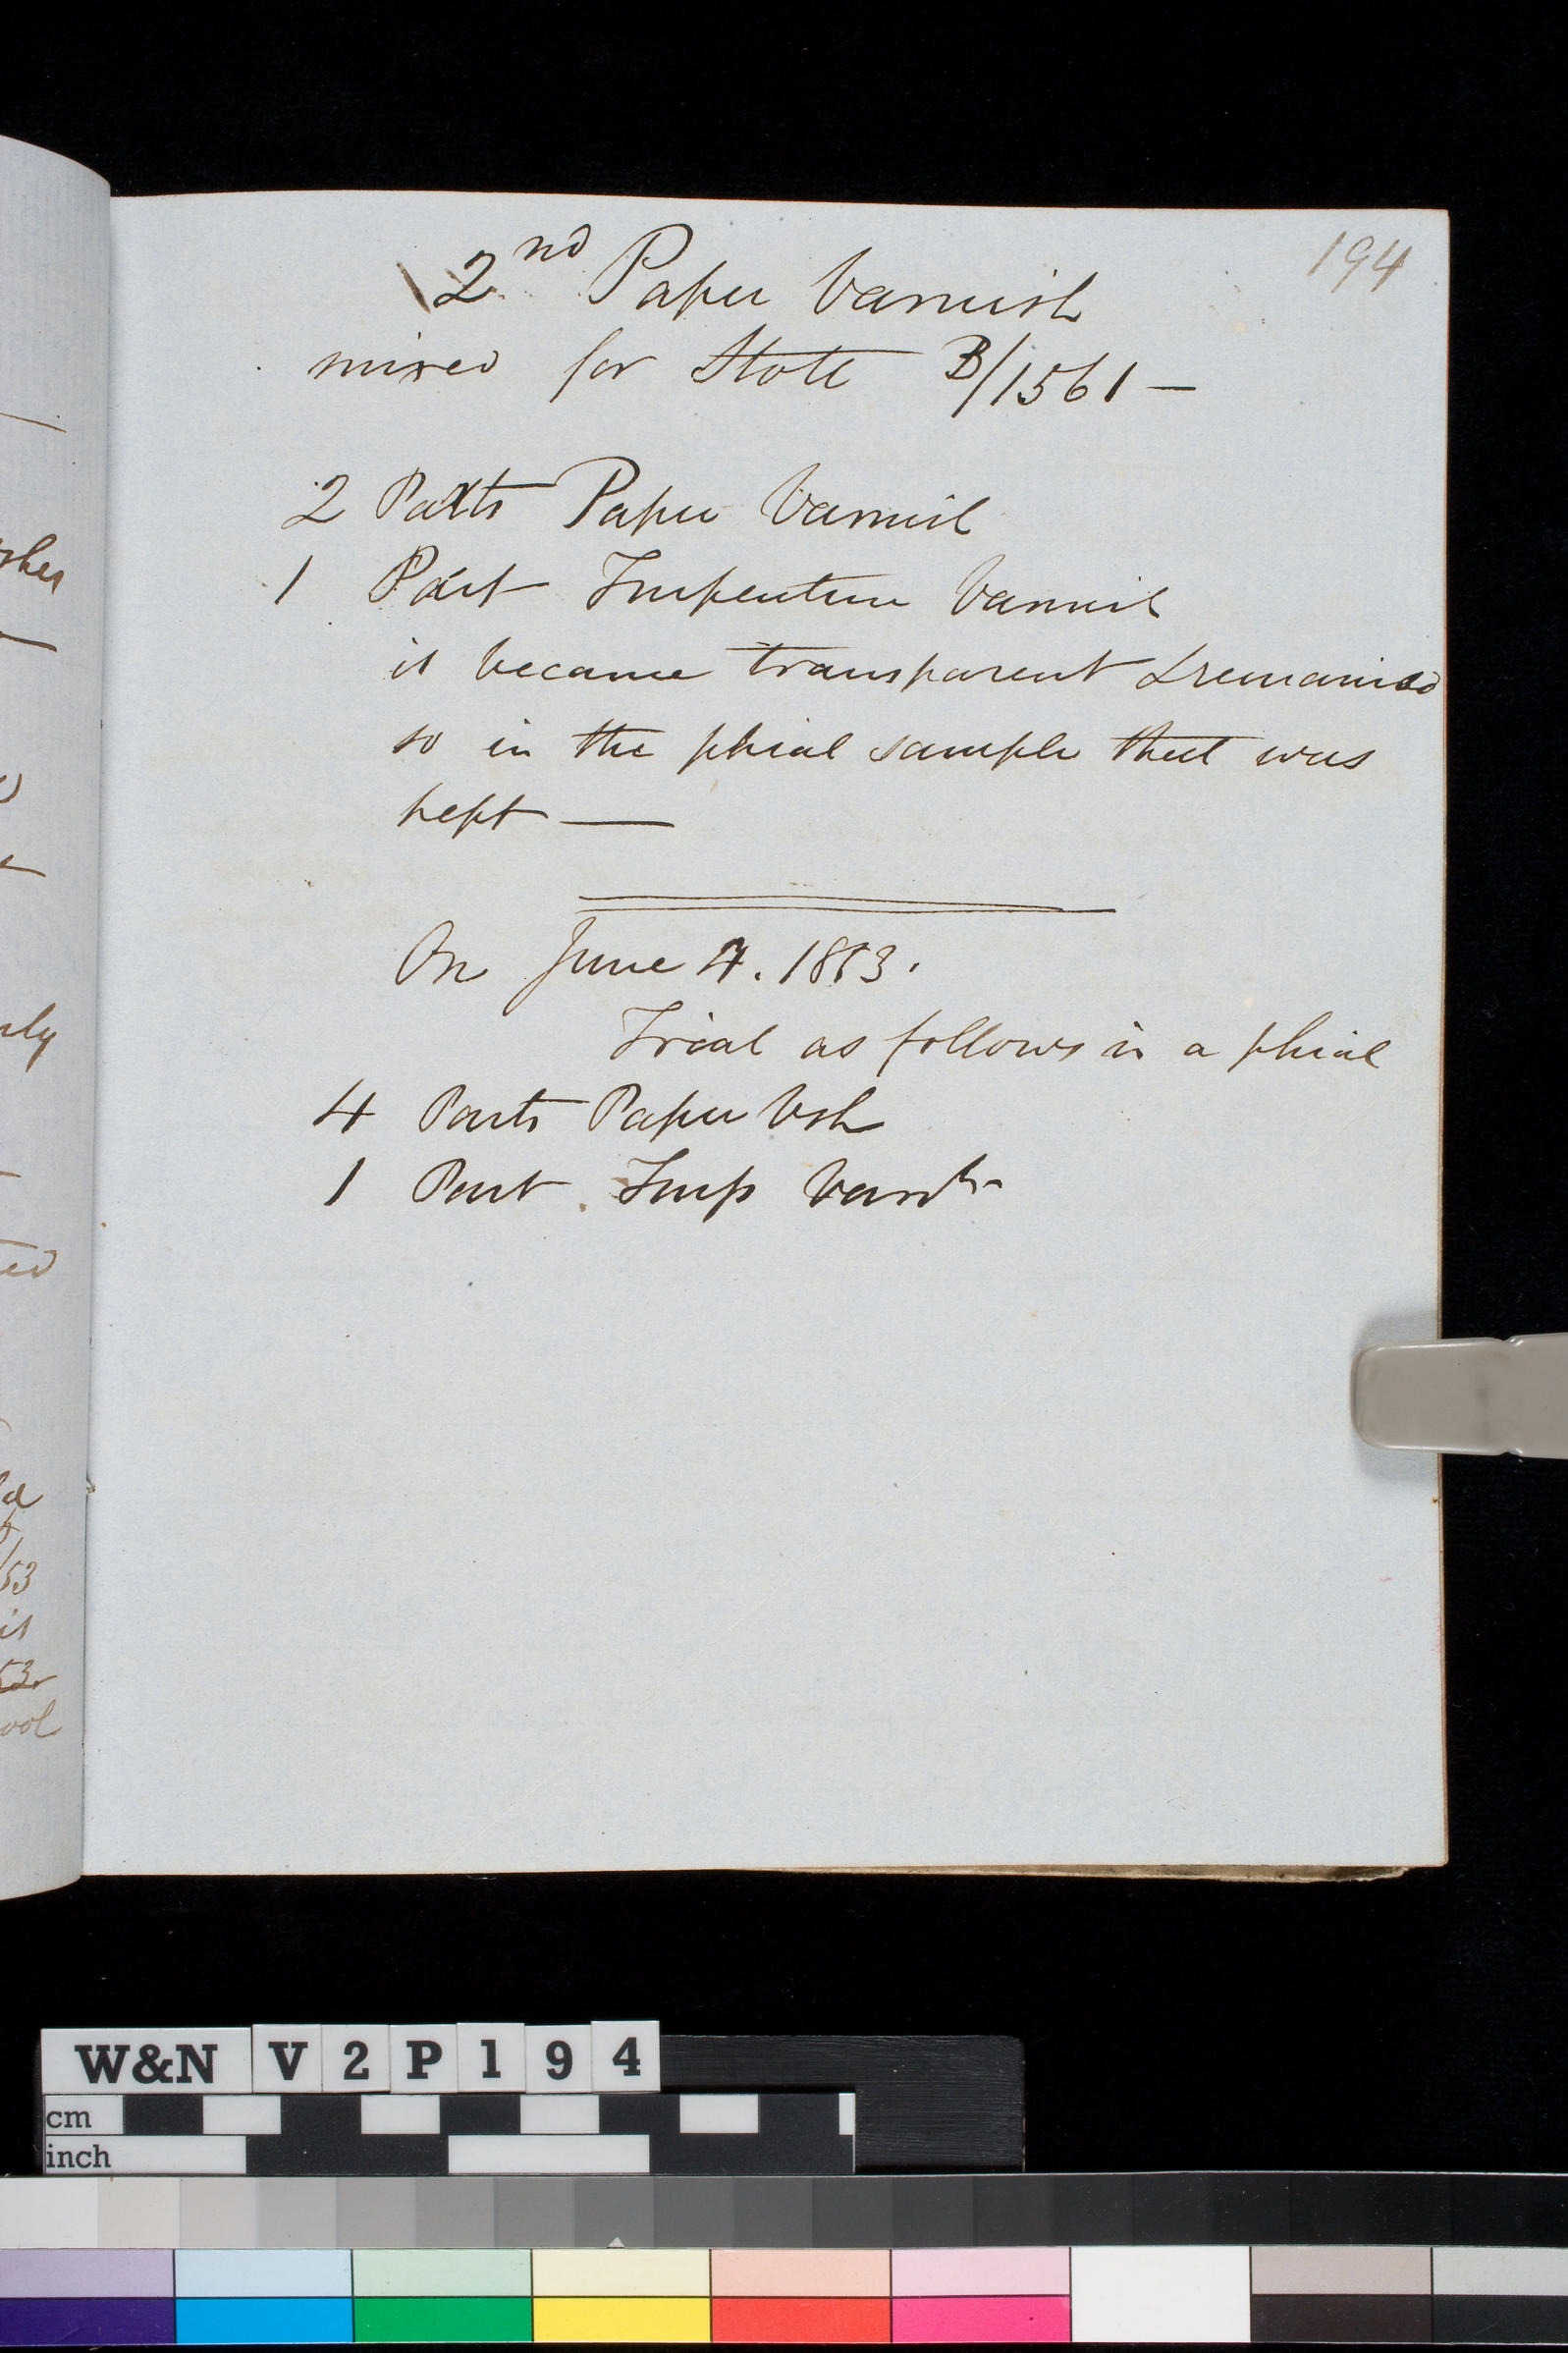 194
2nd Paper Varnish
mixed for State B/1561 —
2 Parts Paper Varnish
1 Part Varnish
it became transparent & remained
so in the phial sample that was
kept —
On June 4. 1853.
Trial as follows in a phial
4 Parts Paper Vsh
1 Part Imp Varsh
sher
rly
ed
53
is
53
ool
W&N V2P194
cm
inch